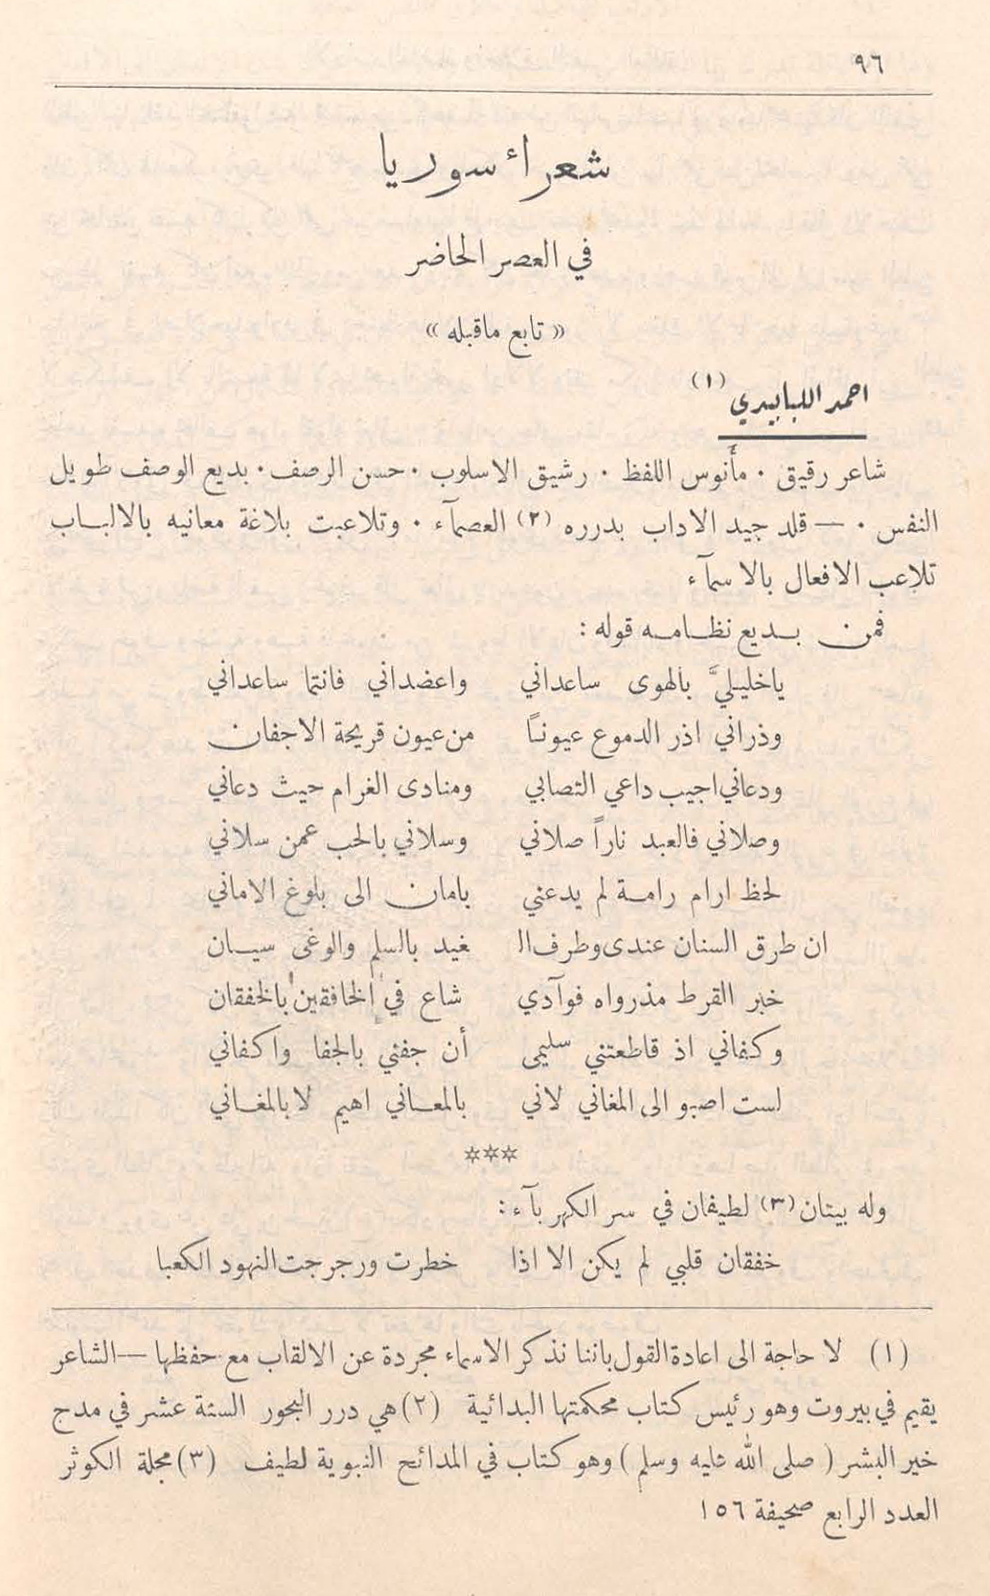 ٩٦
شعراء سوريا
في العصر الحاضر
« تابع ماقبله »
احمد اللبابيدي (١)
شاعر رقيق ٠ مأنوس اللفظ ٠ رشيق الاسلوب ٠ حسن الرصف ٠ بديع الوصف طويل
النفس ٠ — قلد جيد الاداب بدرره (٢) العصمآء ٠ وتلاعبت بلاغة معانيه بالالباب
تلاعب الافعال بالاسمآء
فمن بديع نظامه قوله :
ياخليليَّ بالهوى ساعداني واعضداني فانتما ساعداني
وذراني اذر الدموع عيوناً من عيون قريحة الاجفان
ودعاني اجيب داعي التصابي ومنادى الغرام حيث دعاني
وصلاني فالعبد ناراً صلاني وسلاني بالحب عمن سلاني
لحظ ارام رامة لم يدعني بامان الى بلوغ الاماني
ان طرق السنان عندى وطرف الـ غيد بالسلم والوغى سيان
خبر القرط مذرواه فوآدي شاع في الخافقين بالخفقان
وكفاني اذ قاطعتني سليمى أن جفني بالجفا واكفاني
لست اصبو الى المغاني لاني بالمعاني اهيم لا بالمغاني
***
وله بيتان (٣) لطيفان في سر الكهربآء :
خفقان قلبي لم يكن الا اذا خطرت ورجرجت النهود الكعبا
(١) لا حاجة الى اعادة القول باننا نذكر الاسماء مجردة عن الالقاب مع حفظها — الشاعر
يقيم في بيروت وهو رئيس كتاب محكمتها البدائية (٢) هي درر البحور الستة عشر في مدح
خير البشر ( صلى الله عليه وسلم ) وهو كتاب في المدائح النبوية لطيف (٣) مجلة الكوثر
العدد الرابع صحيفة ١٥٦